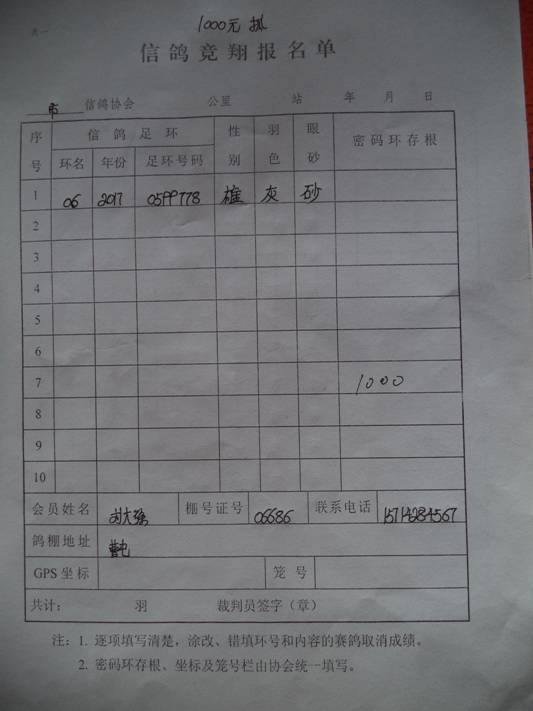 表一
1000元 抓
信鸽竞翔报名单
市 信鸽协会 公里 站 年 月 日
序号 信鸽足环 性别 羽色 眼砂 密码环存根
环名 年份 足环号码
1 06 2017 0599778 雄 灰 砂
2
3
4
5
6
7 1000
8
9
10
会员姓名 刘大强 棚号证号 06686 联系电话 15714284567
鸽棚地址
GPS坐标 笼号
共计： 羽 裁判员签字（章）
注：1. 逐项填写清楚，涂改、错填环号和内容的赛鸽取消成绩。
2. 密码环存根、坐标及笼号栏由协会统一填写。